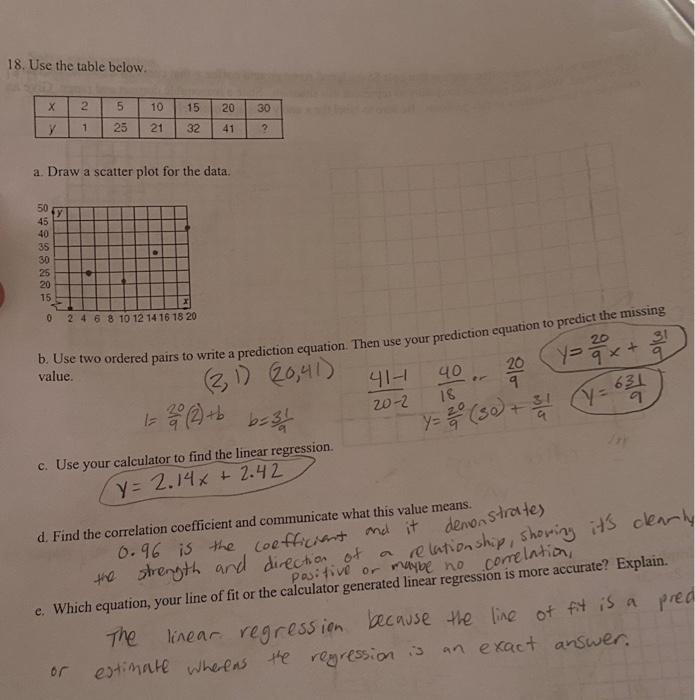 18. Use the table below.
x 2 5 10 15 20 30
y 1 25 21 32 41 ?
a. Draw a scatter plot for the data.
50 y
45
40
35
30
25
20
15 x
0 2 4 6 8 10 12 14 16 18 20
b. Use two ordered pairs to write a prediction equation. Then use your prediction equation to predict the missing
value.
(2,1) (20,41) 41-1/20-2 40/18 or 20/9 y=20/9x+31/9
1=20/9(2)+b b=31/9 y=20/9(30)+31/9 y=631/9
c. Use your calculator to find the linear regression.
y=2.14x+2.42
d. Find the correlation coefficient and communicate what this value means.
0.96 is the coefficient and it demonstrates
the strength and direction of a relationship, showing it's clearly
positive or maybe no correlation,
e. Which equation, your line of fit or the calculator generated linear regression is more accurate? Explain.
The linear regression because the line of fit is a pred
or estimate whereas the regression is an exact answer.